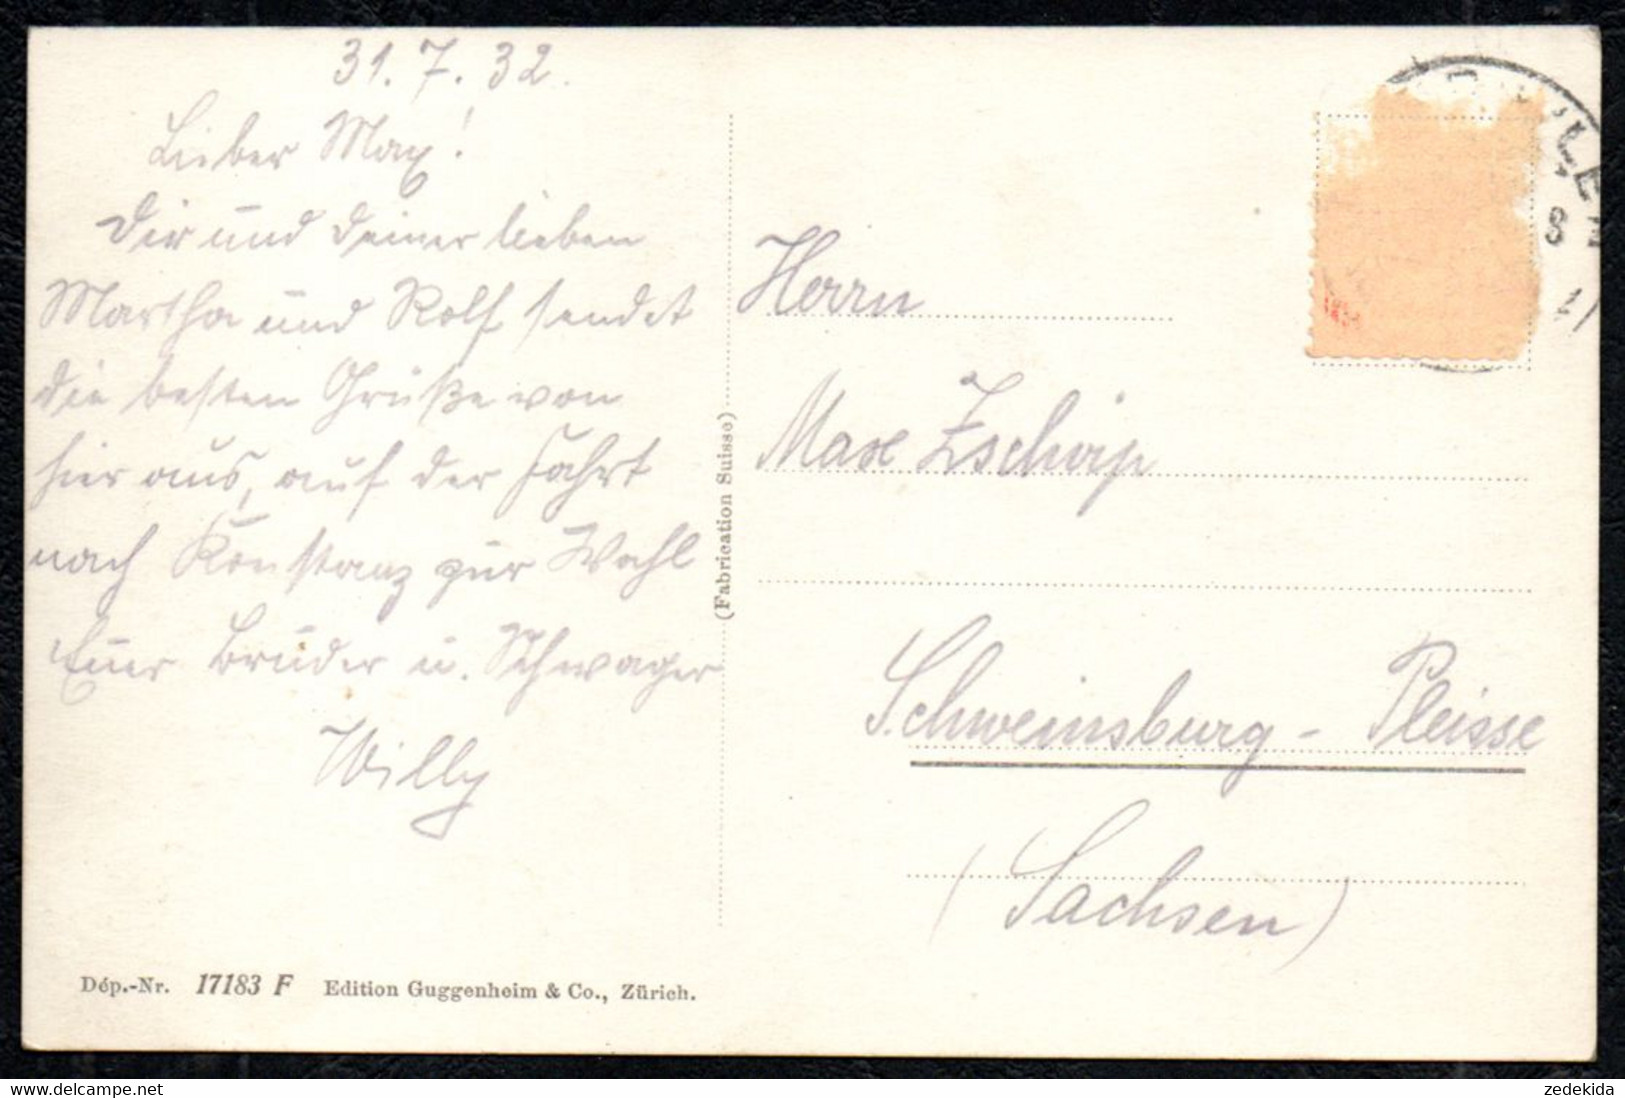 31. 7. 32.
Lieber Max!
Dir und deiner lieben
Martha und Rolf sendet
die besten Grüße von
hier aus, auf der Fahrt
nach Konstanz zur Wahl
Euer Bruder u. Schwager
Willy
Dép.-Nr. 17183 F Edition Guggenheim & Co., Zürich.
(Fabrication Suisse)
Herrn
Max Zschirp
Schweinsburg - Pleisse
(Sachsen)
8
zedekida